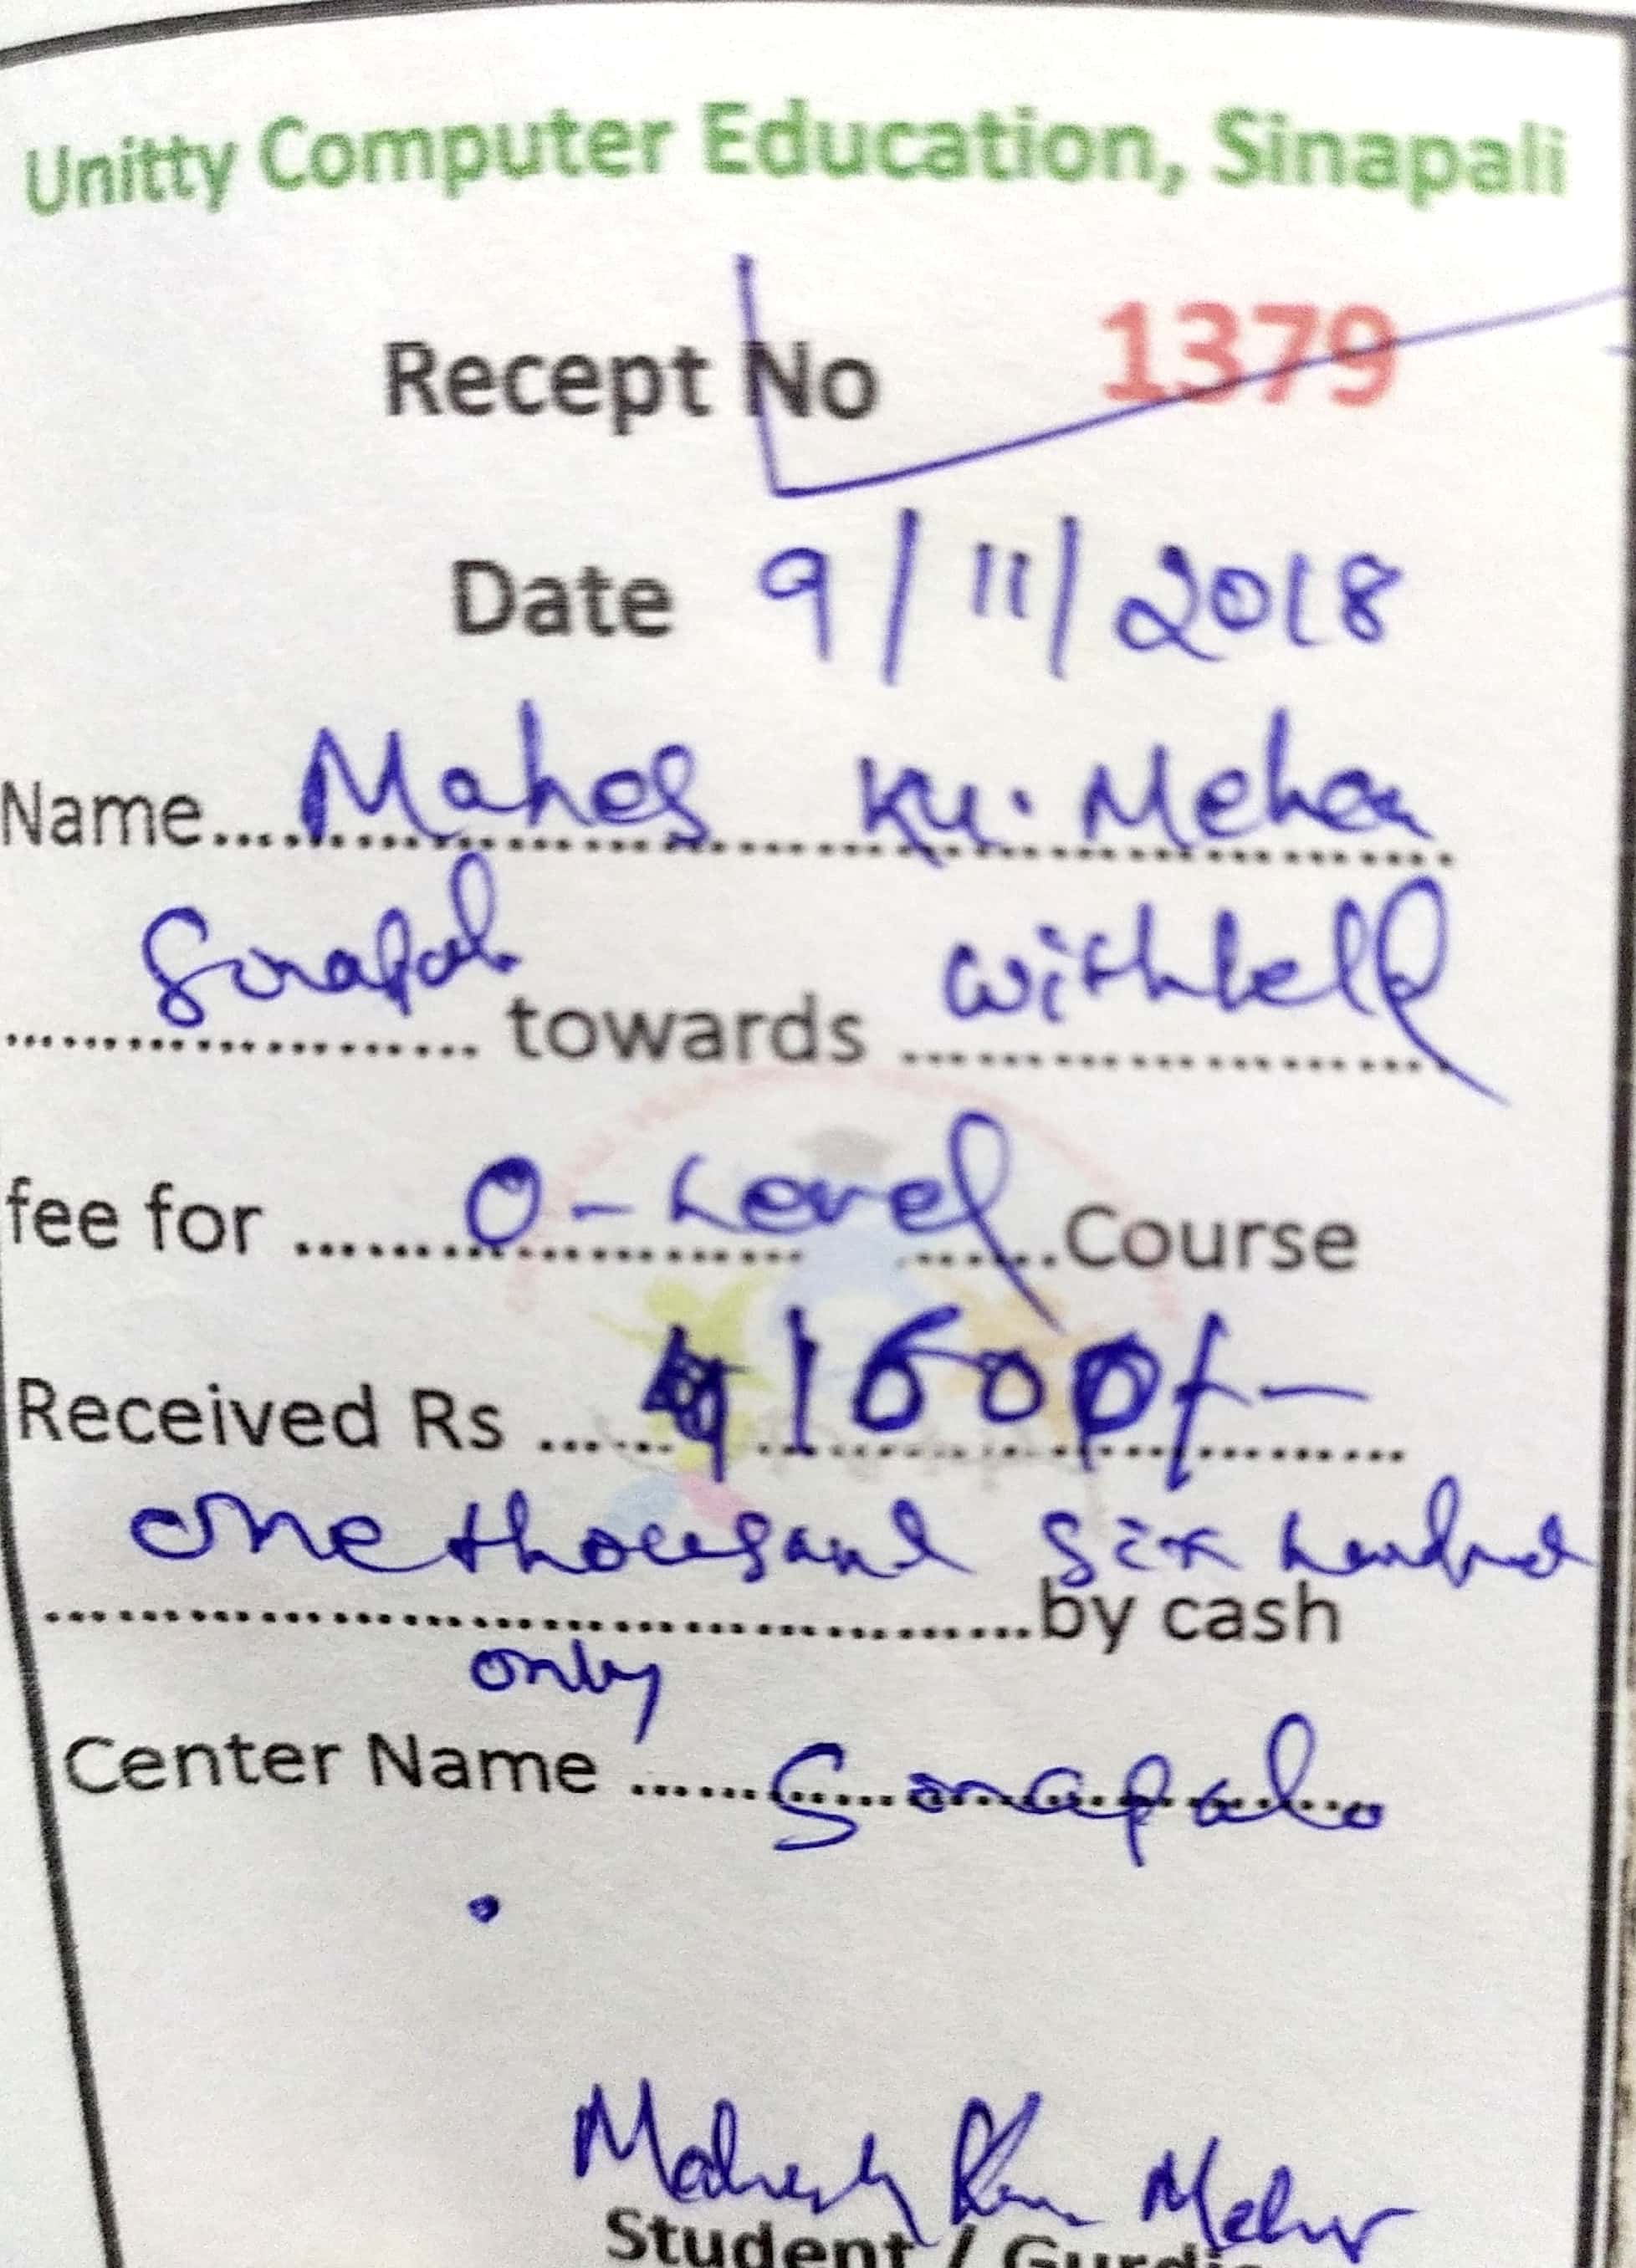 Unitty Computer Education, Sinapali
Recept No 1379
Date 9/11/2018
Name.... Mahes Ku. Meher
.................... towards ....................
fee for .... O-Level ....Course
Received Rs .... 1600/-
one thousand six hundred
....................by cash
only
Center Name .... Sinapali
Mahesh Ku. Meher
Student /